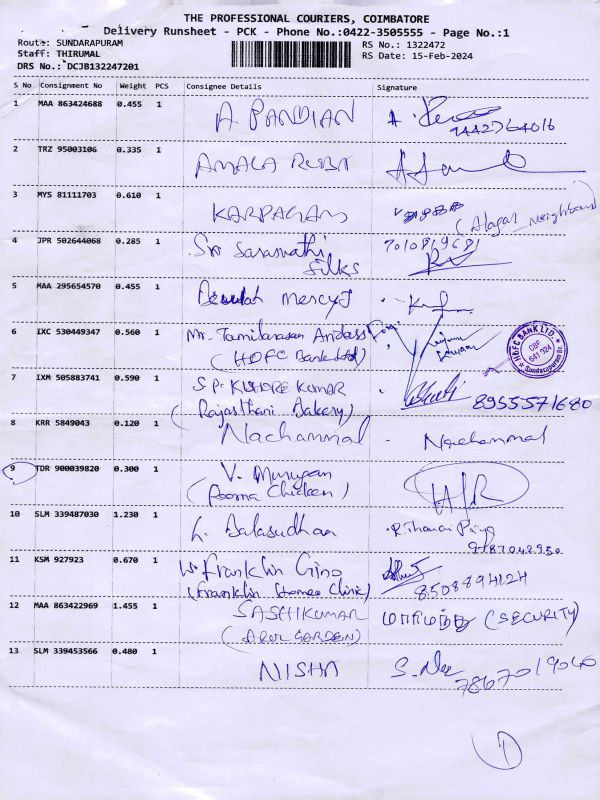 THE PROFESSIONAL COURIERS, COIMBATORE
Delivery Runsheet - PCK - Phone No.:0422-3505555 - Page No.:1
Route: SUNDARAPURAM
Staff: THIRUMAL
DRS No.: DCJB132247201
RS No.: 1322472
RS Date: 15-Feb-2024
S No Consignment No Weight PCS Consignee Details Signature
1 MAA 863424688 0.455 1 A. PANDIAN
9442764016
2 TRZ 95003106 0.335 1 AMALA RUBA
3 MYS 81111703 0.610 1 KARPAGAM
(Alagar Neighbour)
4 JPR 502644068 0.285 1 Sri Saraswathi Silks 7010819681
5 MAA 295654570 0.455 1 Beulah Mercy J
6 IXC 530449347 0.560 1 Mr. Tamilarasan
(HDFC Bank Ltd)
HDFC BANK LTD
641 024
Sundarapuram Br.
7 IXM 505883741 0.590 1 S.P. KISHORE KUMAR
(Rajasthani Bakery) 8955571680
8 KRR 5849043 0.120 1 Nachammal Nachammal
9 TDR 900039820 0.300 1 V. Murugan
(Poorna Chicken)
10 SLM 339487030 1.230 1 L. Balasudhan
9787048950
11 KSM 927923 0.670 1 Franklin Gino
(Franklin Homeo Clinic) 8508894124
12 MAA 863422969 1.455 1 SASHIKUMAR (SECURITY)
(ARUL GARDEN)
13 SLM 339453566 0.480 1 NISHA
7867019040
1